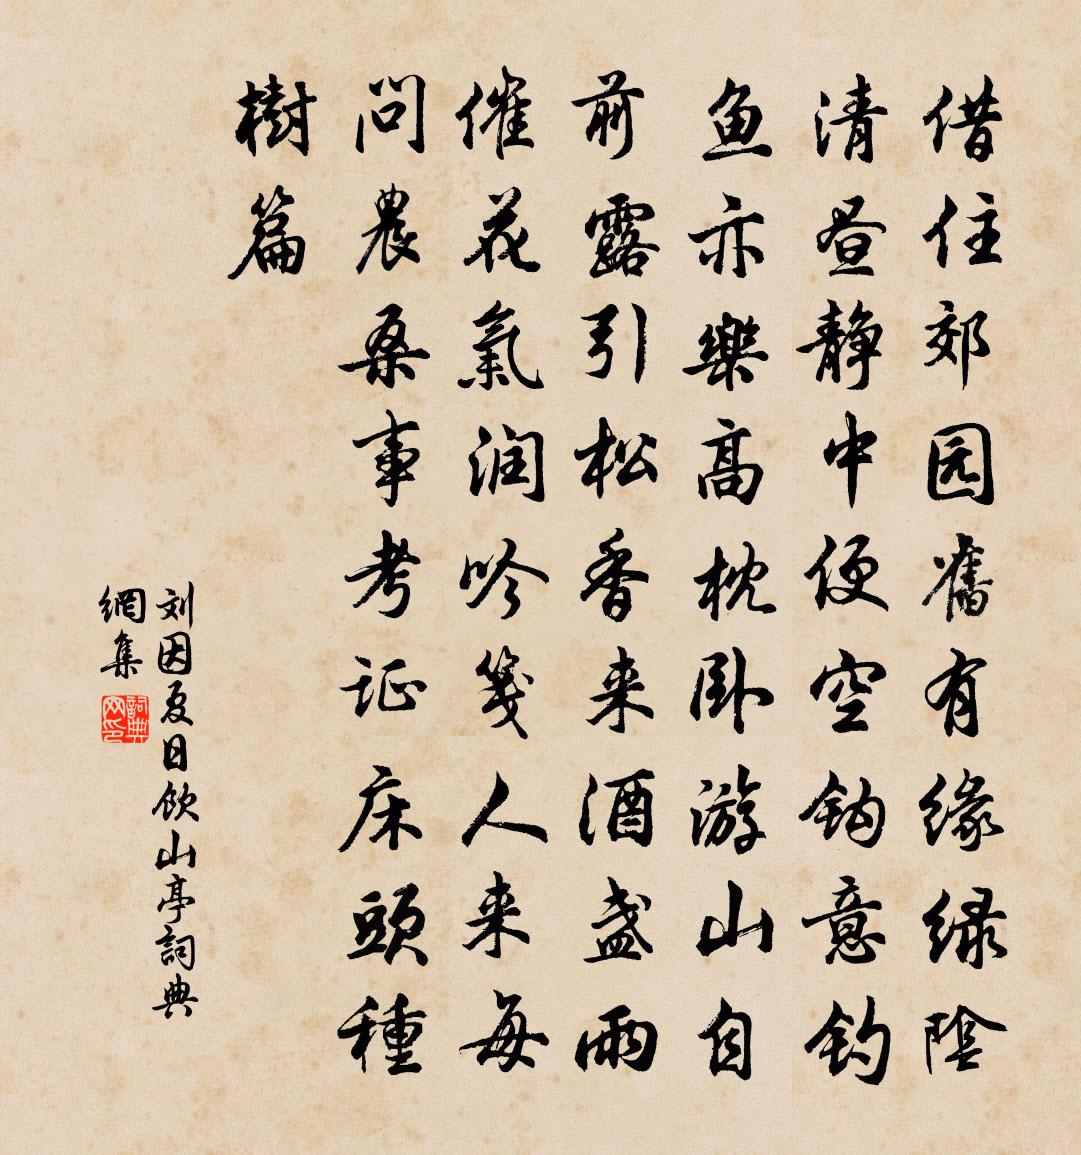 借住郊园舊有缘绿陰
清昼静中便空钩意钓
鱼亦樂高枕卧游山自
前露引松香来酒盏雨
催花氣润吟笺人来每
問農桑事考证床頭種
樹篇
刘因夏日飲山亭詞典
網集
詞典
网印